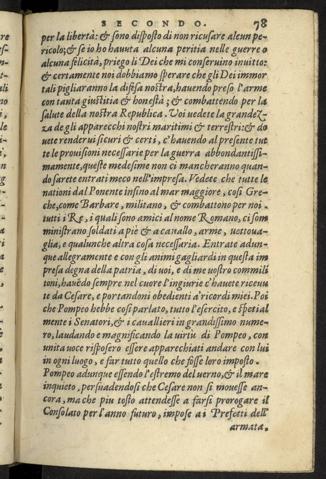 SECONDO. 78
per la libertà: & sono disposto di non ricusare alcun pe-
ricolo; & se io ho hauuta alcuna peritia nelle guerre o
alcuna felicità, priego li Dei che mi conseruino inuitto:
& certamente noi dobbiamo sperare che gli Dei immor
tali pigliaranno la difesa nostra, hauendo preso l'arme
con tanta giustitia & honestà; & combattendo per la
salute della nostra Republica. Voi uedete la grandeZ-
za de gli apparecchi nostri maritimi & terrestri: & do
uete renderui sicuri & certi, c'hauendo al presente tut
te le prouisioni necessarie per la guerra abbondantissi-
mamente, queste medesime non ci mancheranno quan-
do sarete entrati meco nell'impresa. Vedete che tutte le
nationi dal Ponente insino al mar maggiore, cosi Gre-
che, come Barbare, militano, & combattono per noi-
tutti i Re, i quali sono amici al nome Romano, ci som
ministrano soldati a piè & a cauallo, arme, uettoua-
glia, e qualunche altra cosa necessaria. Entrate adun-
que allegramente e con gli animi gagliardi in questa im
presa degna della patria, di uoi, e di me uostro commili
toni, hauēdo sempre nel cuore l'ingiurie c'hauete riceuu
te da Cesare, e portandoni obedienti a' ricordi miei. Poi
che Pompeo hebbe cosi parlato, tutto l'esercito, e spetial
mente i Senatori, & i cauallieri in grandissimo nume-
ro, laudando e magnificando la uirtù di Pompeo, con
unita uoce risposero essere apparechiati andare con lui
in ogni luogo, e far tutto quello che fosse loro imposto.
Pompeo adunque essendo l'estremo del uerno, & il mare
inquieto, persuadendosi che Cesare non si mouesse an-
cora, ma che piu tosto attendesse a farsi prorogare il
Consolato per l'anno futuro, impose a i Prefetti dell'
armata,